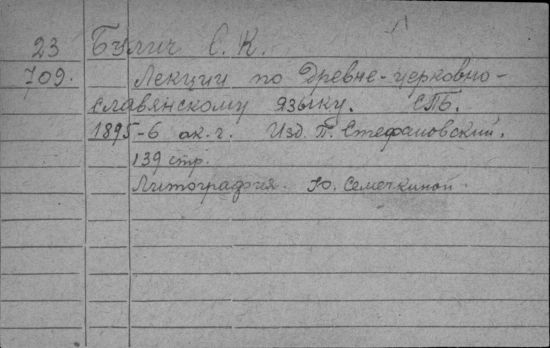 23 Булич С. К.
709. Лекции по Древне-церковно-
славянскому языку. СПБ.
1895-6 ак. г. Изд. П. Стефановский.
139 стр.
Литография. Ю. Семечкиной.